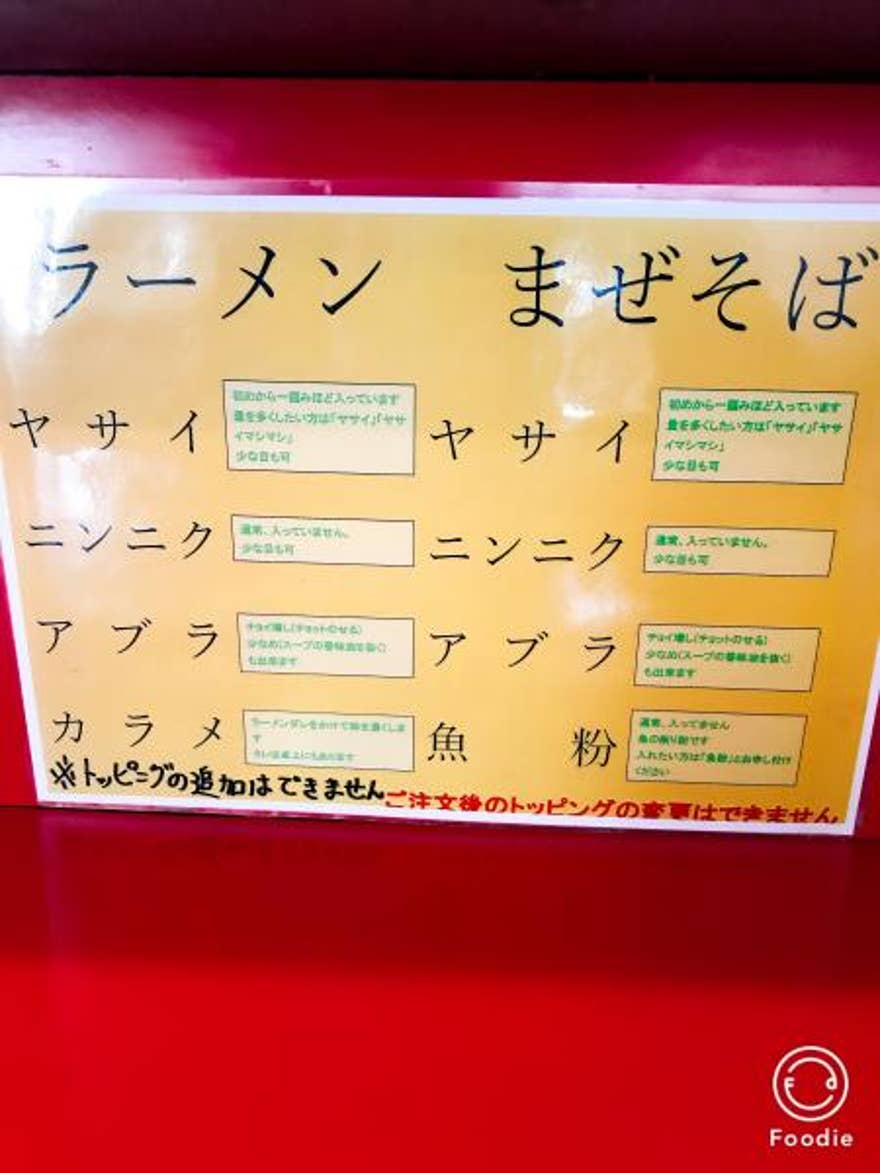 ラーメン
ヤサイ
初めから一掴みほど入っています
量を多くしたい方は「ヤサイ」「ヤサ
イマシマシ」
少な目も可
ニンニク
通常、入っていません。
少な目も可
アブラ
チョイ増し(チョットのせる)
少なめ(スープの香味油を抜く)
も出来ます
カラメ
ラーメンダレをかけて味を濃くしま
す
タレは卓上にもあります
まぜそば
ヤサイ
初めから一掴みほど入っています
量を多くしたい方は「ヤサイ」「ヤサ
イマシマシ」
少な目も可
ニンニク
通常、入っていません。
少な目も可
アブラ
チョイ増し(チョットのせる)
少なめ(スープの香味油を抜く)
も出来ます
魚粉
通常、入ってません
魚の削り粉です
入れたい方は「魚粉」とお申し付け
ください
※トッピングの追加はできません
ご注文後のトッピングの変更はできません
Foodie